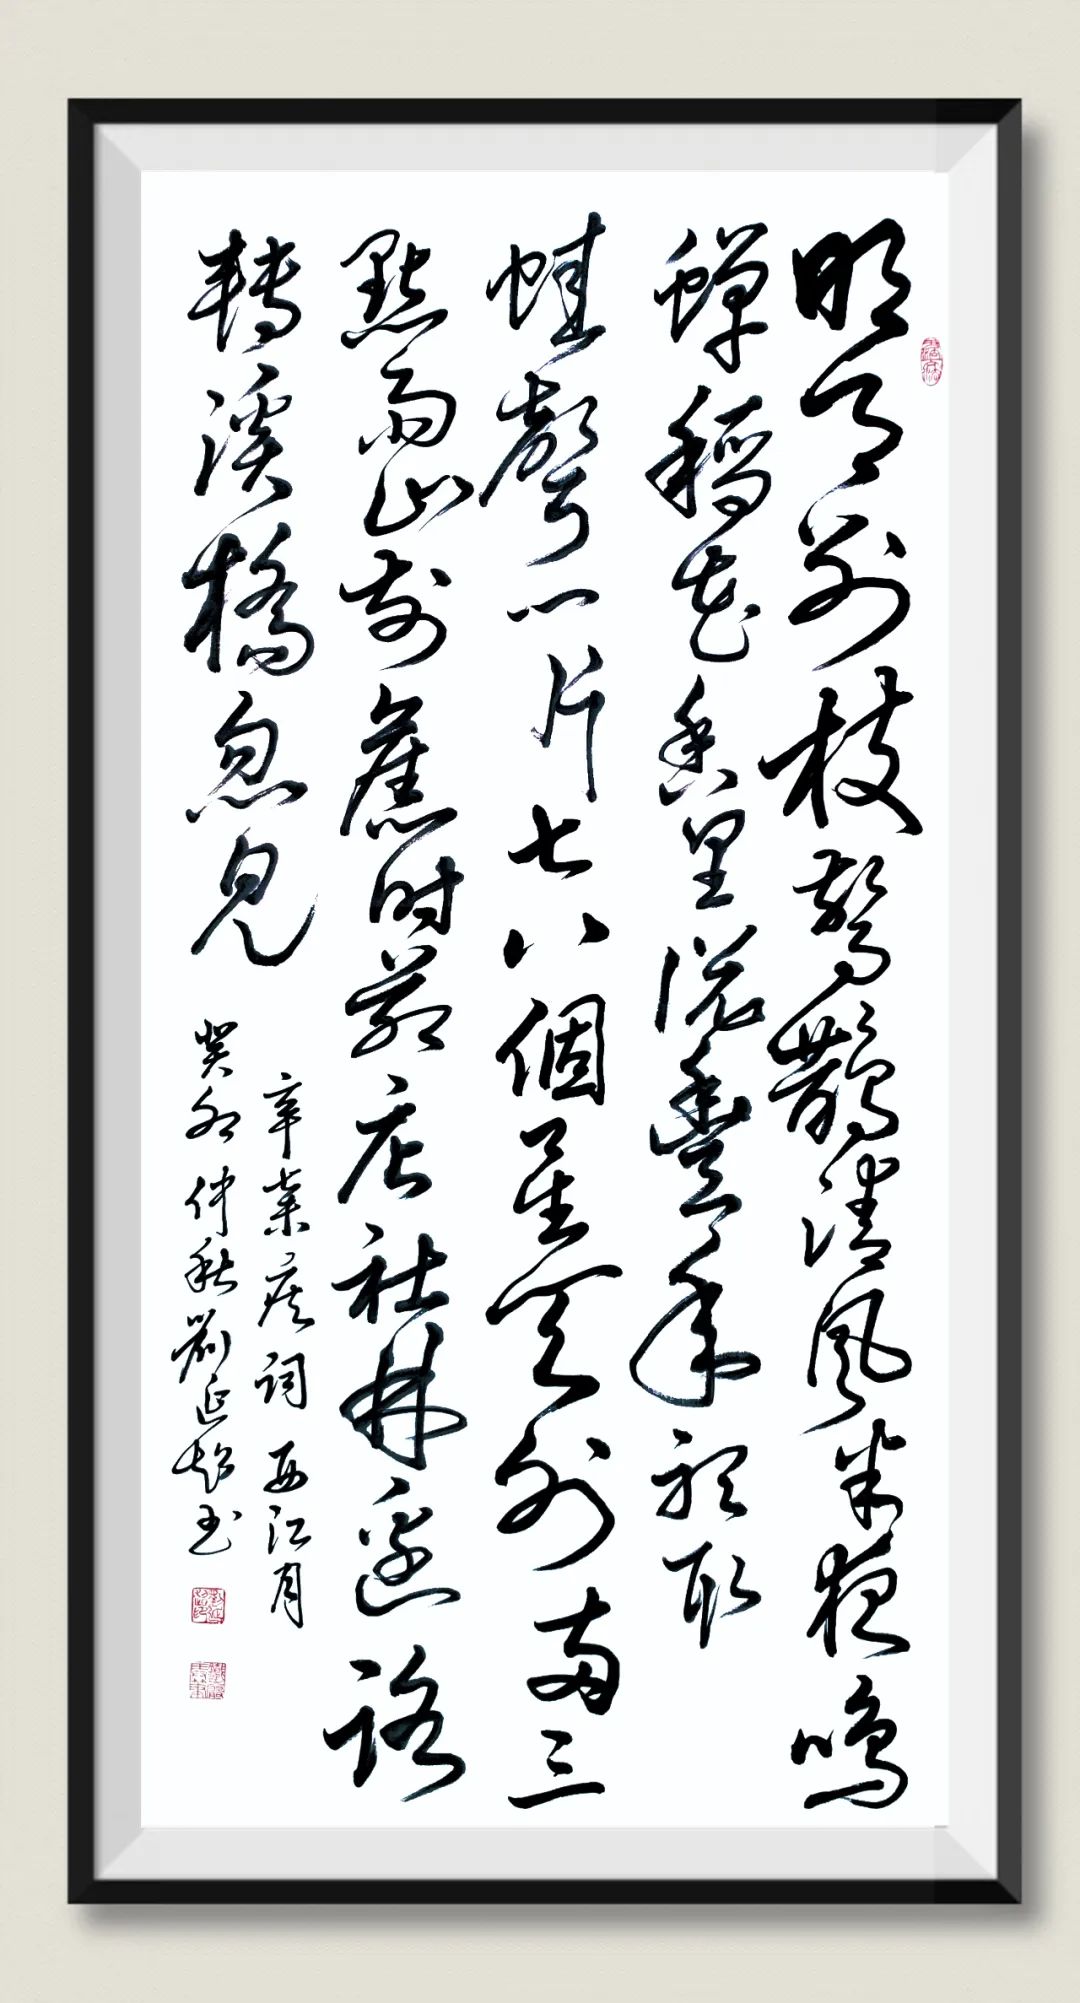 明月别枝驚鵲清風半夜鳴
蟬稻花香里說豐年聽取
蛙聲一片七八個星天外兩三
點雨山前舊時茅店社林邊路
轉溪橋忽見
辛棄疾詞西江月
癸卯仲秋劉延超書